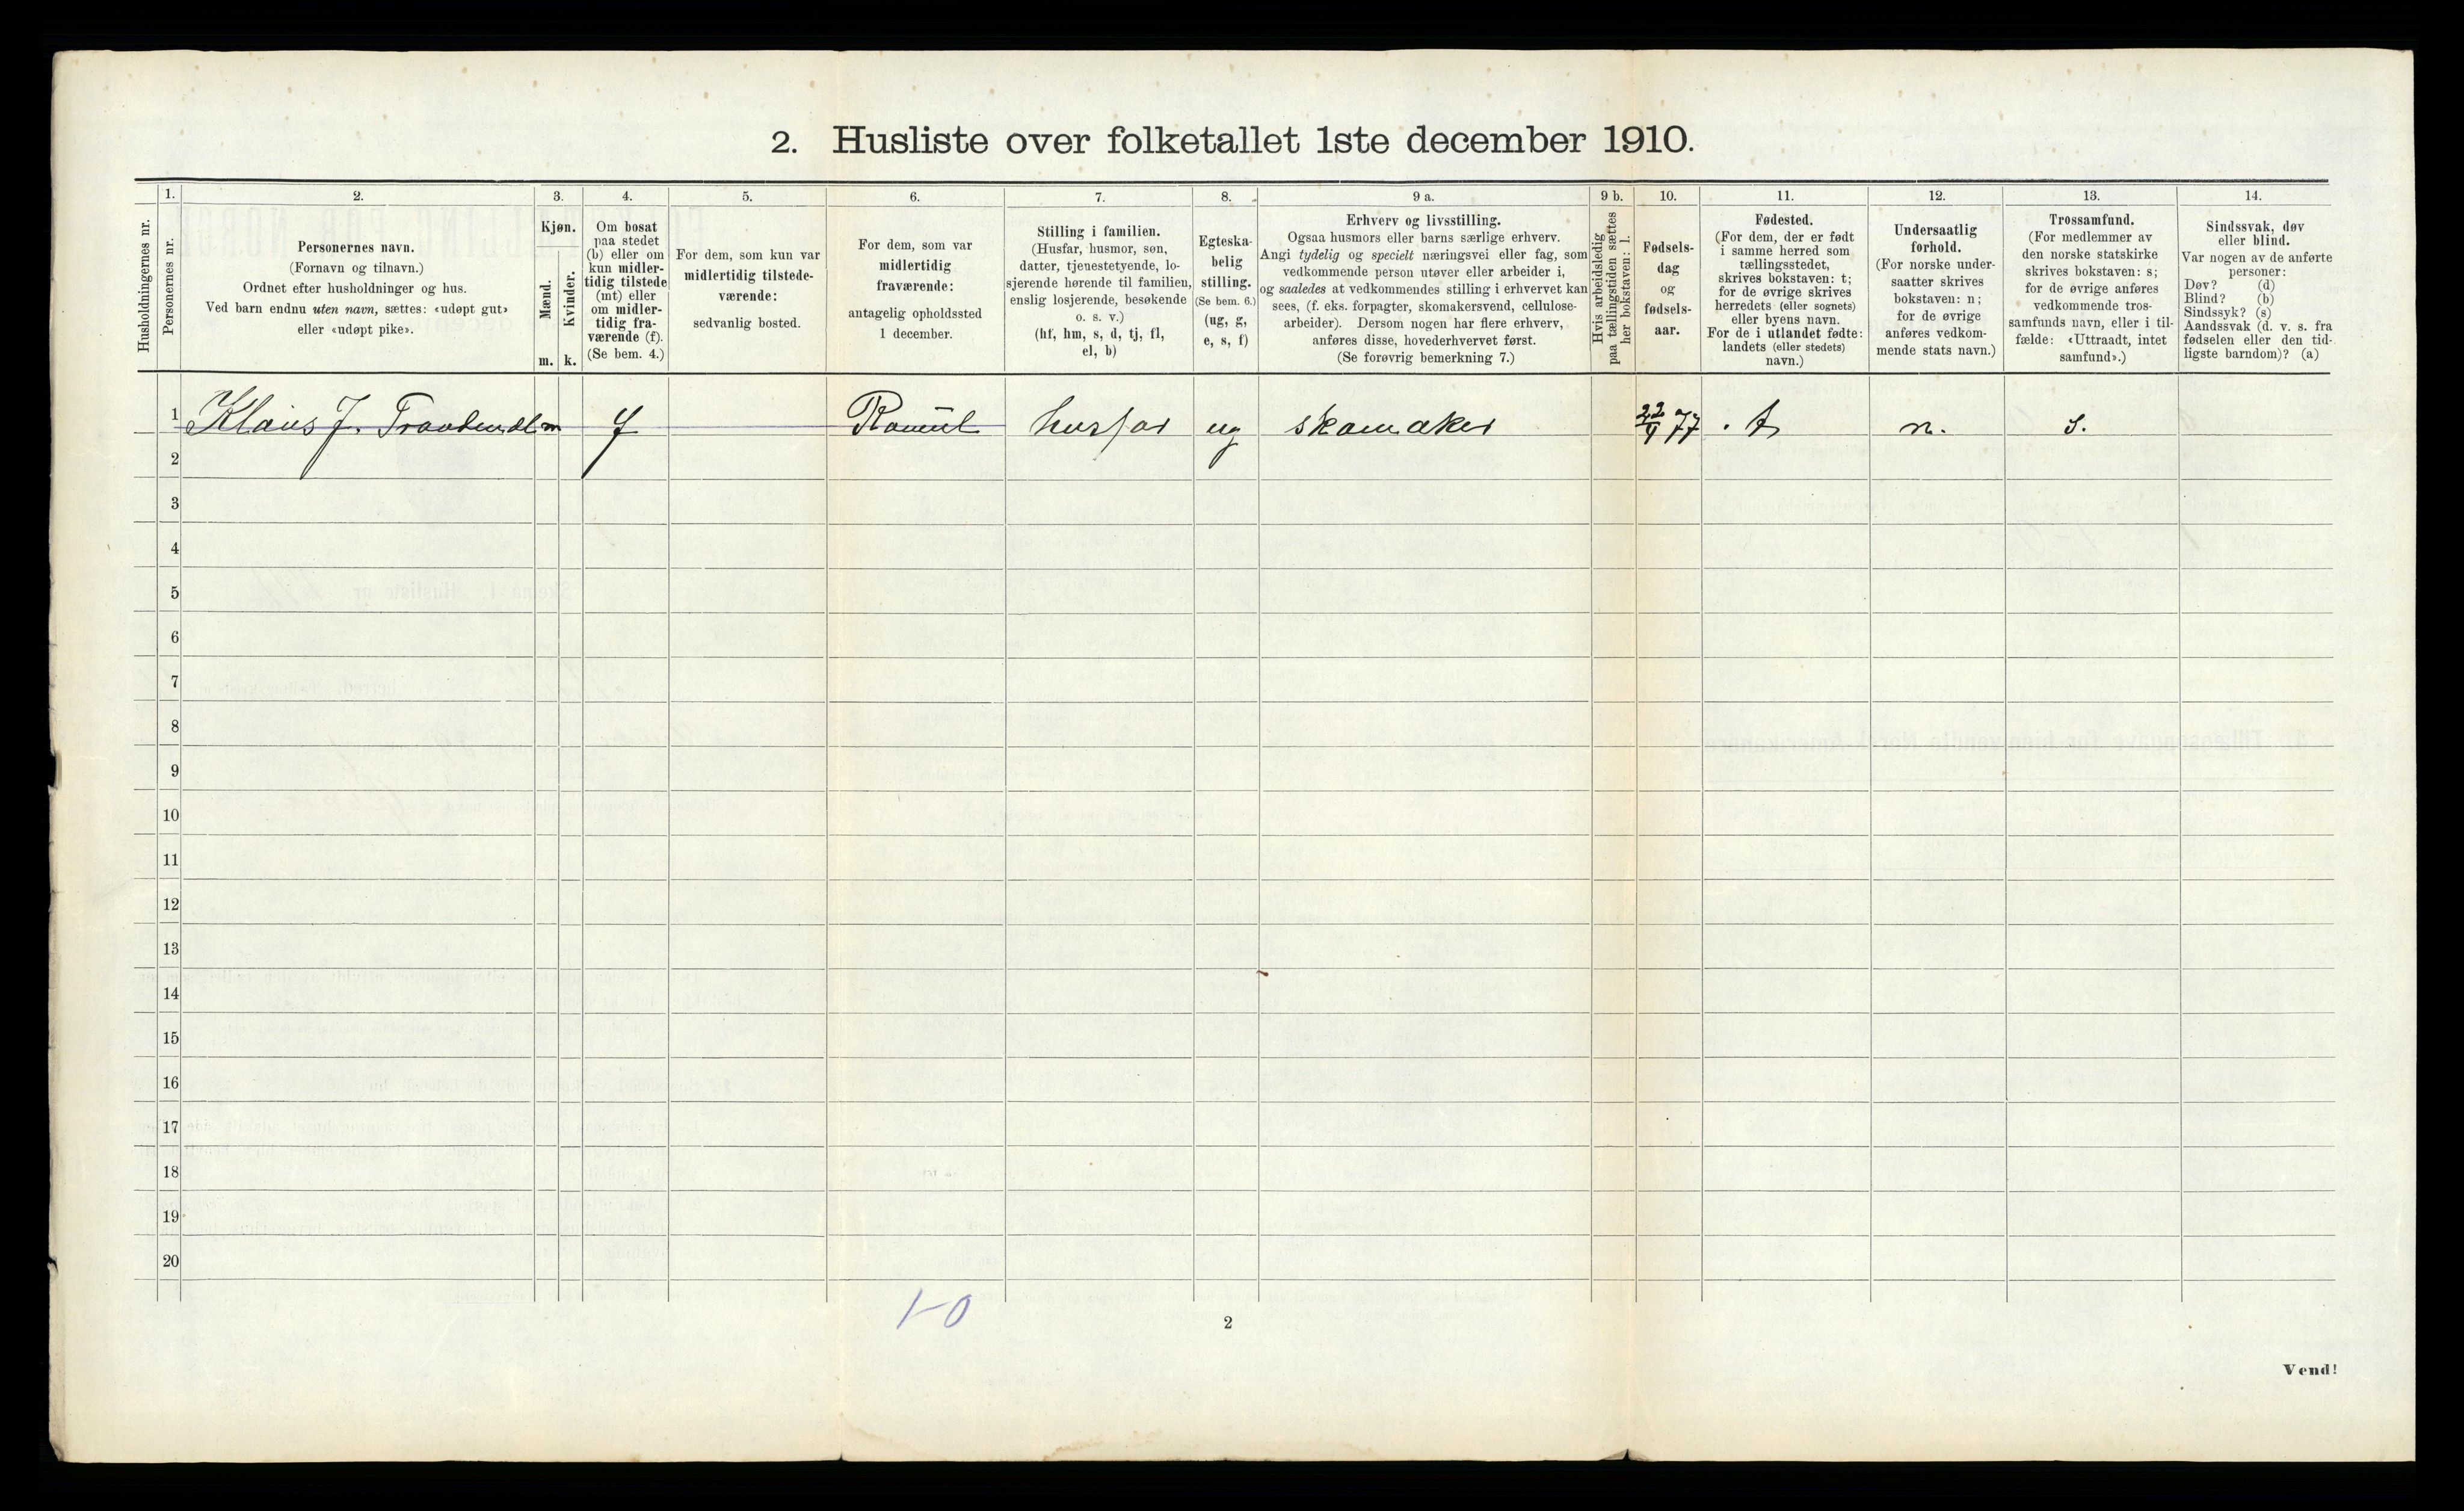 2. Husliste over folketallet 1ste december 1910.
Husholdningernes nr.
1.
Personernes nr.
2.
Personernes navn.
(Fornavn og tilnavn.)
Ordnet efter husholdninger og hus.
Ved barn endnu uten navn, sættes: «udøpt gut»
eller «udøpt pike».
3.
Kjøn.
Mænd.
m.
Kvinder.
k.
4.
Om bosat
paa stedet
(b) eller om
kun midler-
tidig tilstede
(mt) eller
om midler-
tidig fra-
værende (f).
(Se bem. 4.)
5.
For dem, som kun var
midlertidig tilstede-
værende:
sedvanlig bosted.
6.
For dem, som var
midlertidig
fraværende:
antagelig opholdssted
1 december.
7.
Stilling i familien.
(Husfar, husmor, søn,
datter, tjenestetyende, lo-
sjerende hørende til familien,
enslig losjerende, besøkende
o. s. v.)
(hf, hm, s, d, tj, fl,
el, b)
8.
Egteska-
belig
stilling.
(Se bem. 6.)
(ug, g,
e, s, f)
9 a.
Erhverv og livsstilling.
Ogsaa husmors eller barns særlige erhverv.
Angi tydelig og specielt næringsvei eller fag, som
vedkommende person utøver eller arbeider i,
og saaledes at vedkommendes stilling i erhvervet kan
sees, (f. eks. forpagter, skomakersvend, cellulose-
arbeider). Dersom nogen har flere erhverv,
anføres disse, hovederhvervet først.
(Se forøvrig bemerkning 7.)
9 b.
Hvis arbeidsledig
paa tællingstiden sættes
her bokstaven: l.
10.
Fødsels-
dag
og
fødsels-
aar.
11.
Fødested.
(For dem, der er født
i samme herred som
tællingsstedet,
skrives bokstaven: t;
for de øvrige skrives
herredets (eller sognets)
eller byens navn.
For de i utlandet fødte:
landets (eller stedets)
navn.)
12.
Undersaatlig
forhold.
(For norske under-
saatter skrives
bokstaven: n;
for de øvrige
anføres vedkom-
mende stats navn.)
13.
Trossamfund.
(For medlemmer av
den norske statskirke
skrives bokstaven: s;
for de øvrige anføres
vedkommende tros-
samfunds navn, eller i til-
fælde: «Uttraadt, intet
samfund».)
14.
Sindssvak, døv
eller blind.
Var nogen av de anførte
personer:
Døv? (d)
Blind? (b)
Sindssyk? (s)
Aandssvak (d. v. s. fra
fødselen eller den tid-
ligste barndom)? (a)
1 Klaus J. m f husfar ug skomaker 77 t n. s.
2
3
4
5
6
7
8
9
10
11
12
13
14
15
16
17
18
19
20
1-0
2
Vend!